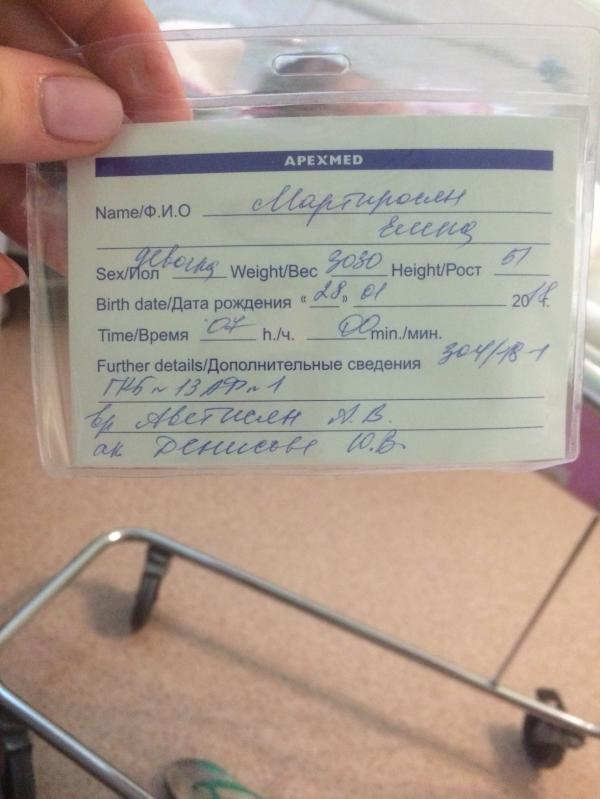 APEXMED
Name/Ф.И.О Мартиросян
Елена
Sex/Пол девочка Weight/Вес 3030 Height/Рост 51
Birth date/Дата рождения «28» 01 2018 г.
Time/Время 07 h./ч. 00 min./мин.
Further details/Дополнительные сведения 304/18-1
ГКБ № 13 АФ № 1
вр Аветисян А.В.
ак Денисова Ю.В.